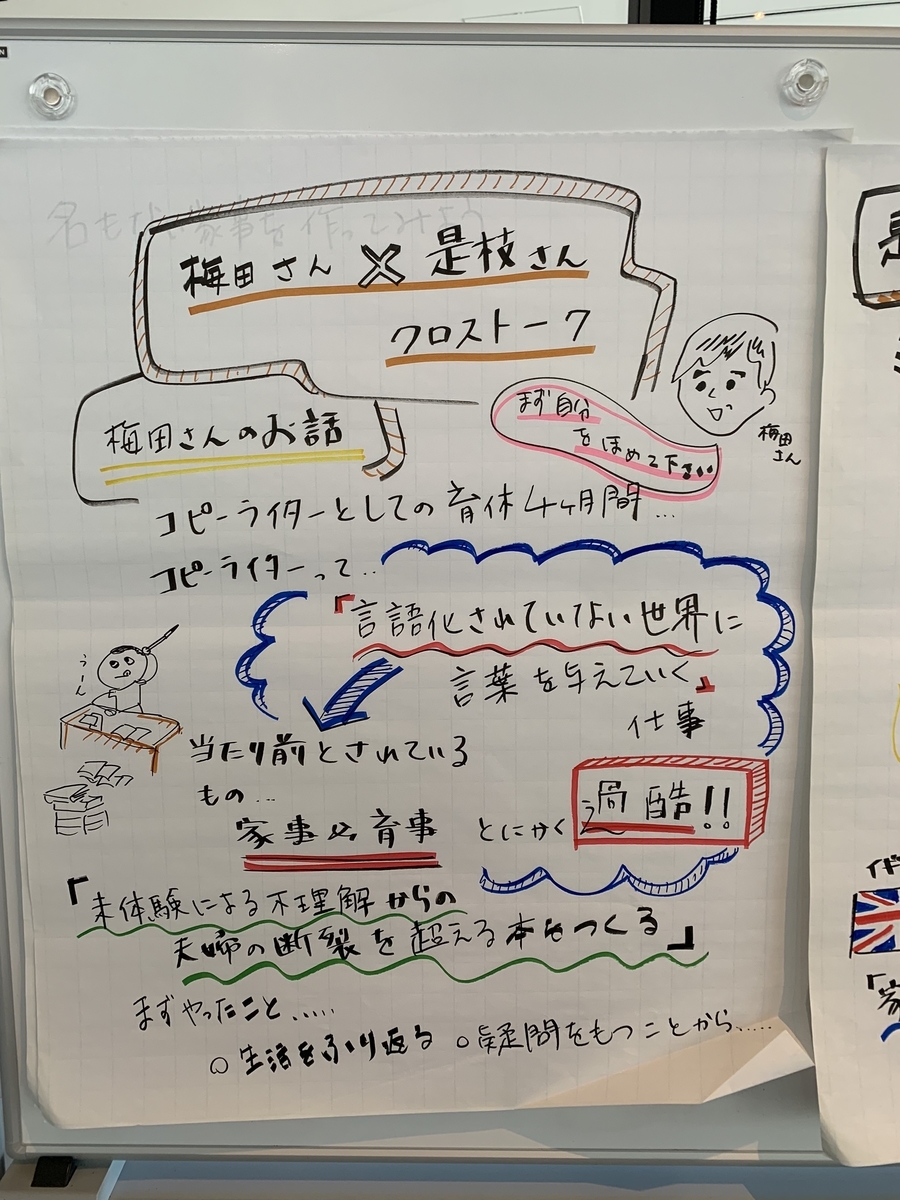 名もない家事を作ってみよう
梅田さん × 是枝さん
クロストーク
梅田さんのお話
まず自分
をほめて下さい
梅田
さん
コピーライターとしての育休4ヶ月間…
コピーライターって…
『言語化されていない世界に
言葉を与えていく』
仕事
うーん
当たり前とされている
もの…
家事や育事
とにかく過酷!!
『未体験による不理解からの
夫婦の断裂を超える本をつくる』
まずやったこと……
○生活をふり返る ○疑問をもつことから……